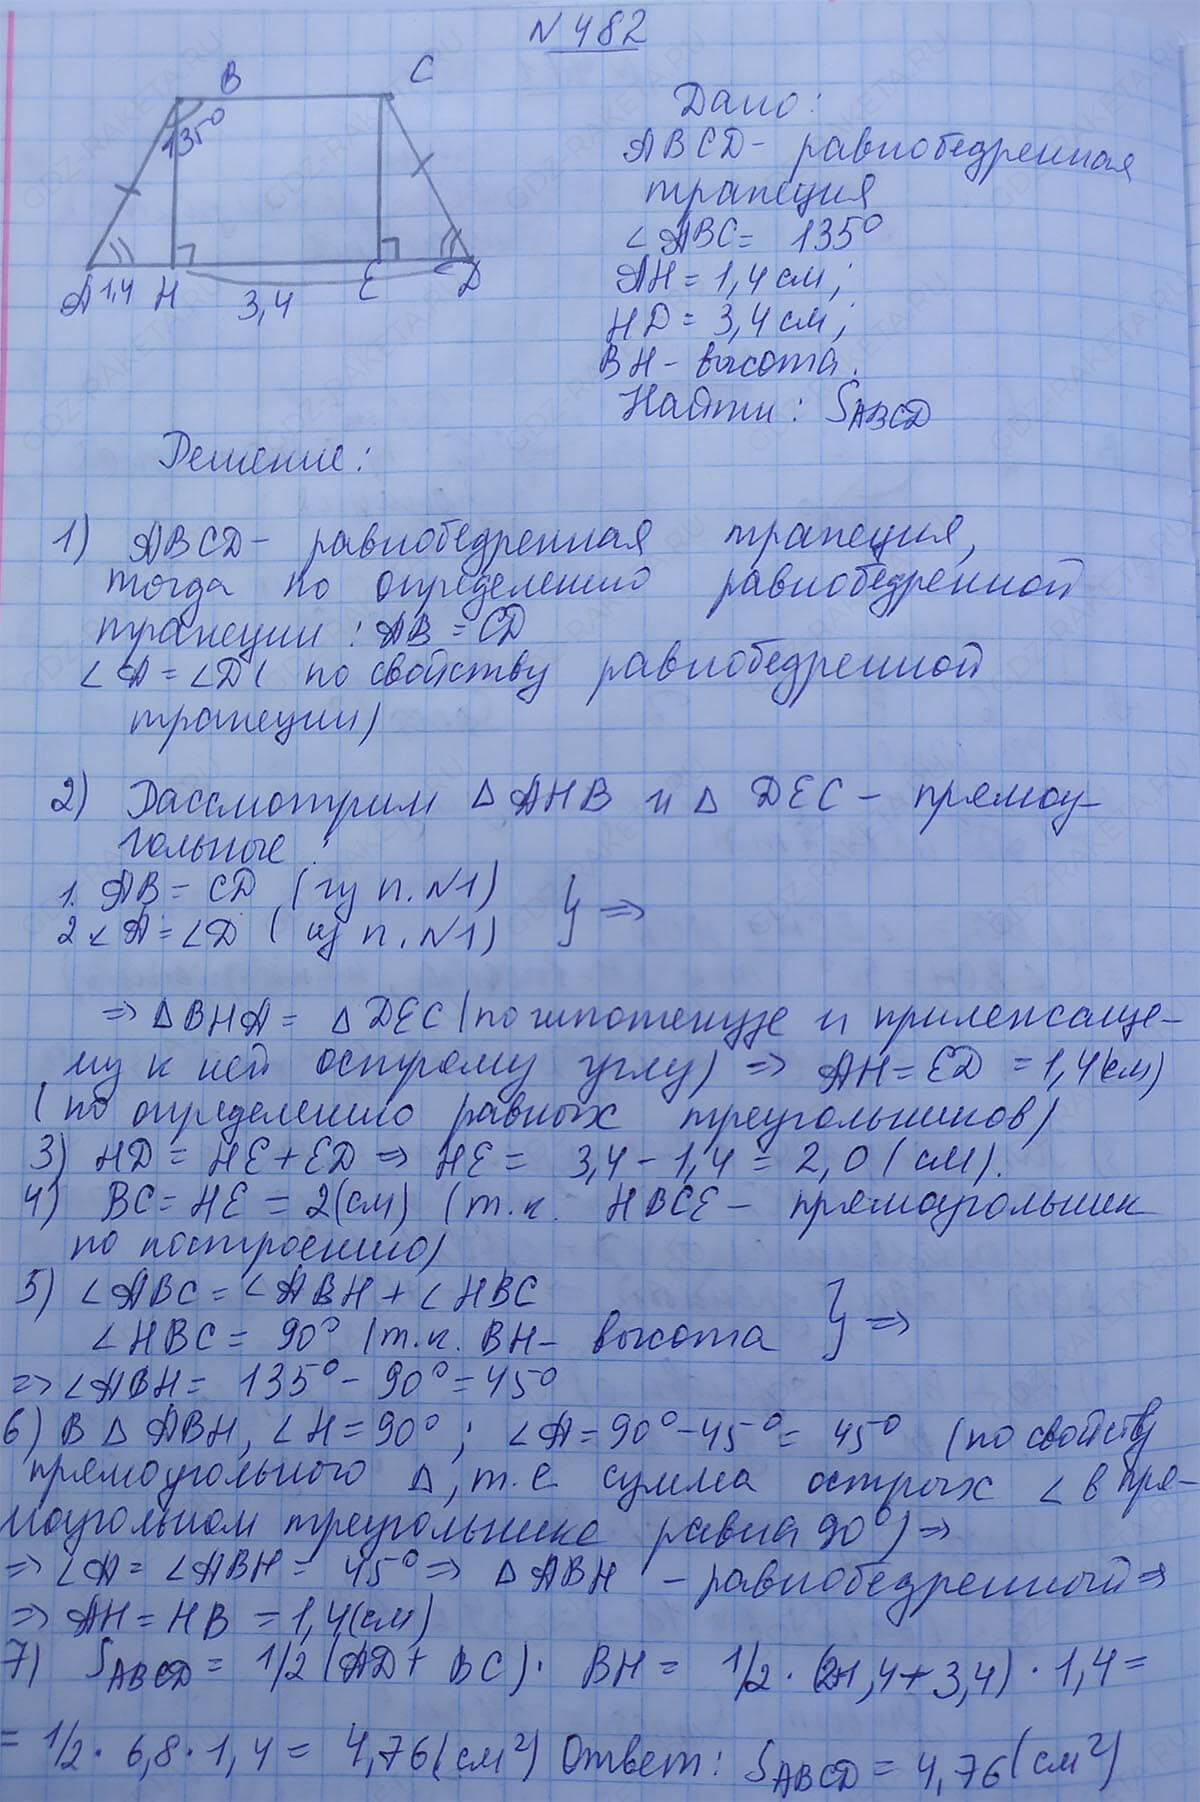 N 482
B
C
135°
A 1,4 H 3,4 E D
Дано:
ABCD - равнобедренная
трапеция
∠ABC = 135°
AH = 1,4 см;
HD = 3,4 см;
BH - высота.
Найти: S ABCD
Решение:
1) ABCD - равнобедренная трапеция,
тогда по определению равнобедренной
трапеции: AB = CD
∠A = ∠D ( по свойству равнобедренной
трапеции)
2) Рассмотрим △ AHB и △ DEC - прямоу-
гольные:
1. AB = CD (из п. N1)
2 ∠A = ∠D ( из п. N1) } ⇒
⇒ △BHA = △DEC (по гипотенузе и прилежаще-
му к ней острому углу) ⇒ AH = ED = 1,4(см)
( по определению равных треугольников)
3) HD = HE + ED ⇒ HE = 3,4 - 1,4 = 2,0 ( см).
4) BC = HE = 2(см) (т.к. HBCE - прямоугольник
по построению)
5) ∠ABC = ∠ABH + ∠HBC
∠HBC = 90° (т.к. BH - высота } ⇒
⇒ ∠ABH = 135° - 90° = 45°
6) В △ ABH, ∠H = 90°; ∠A = 90° - 45° = 45° (по свойству
прямоугольного △, т.е сумма острых ∠ в пря-
моугольном треугольнике равна 90°) ⇒
⇒ ∠A = ∠ABH = 45° ⇒ △ABH - равнобедренный ⇒
⇒ AH = HB = 1,4(см)
7) S ABCD = 1/2 (AD + BC) · BH = 1/2 · (2+1,4+3,4) · 1,4 =
= 1/2 · 6,8 · 1,4 = 4,76 (см²) Ответ: S ABCD = 4,76 (см²)